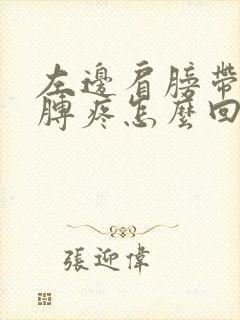 左邊肩膀帶
膊疼怎麼回
張迎偉